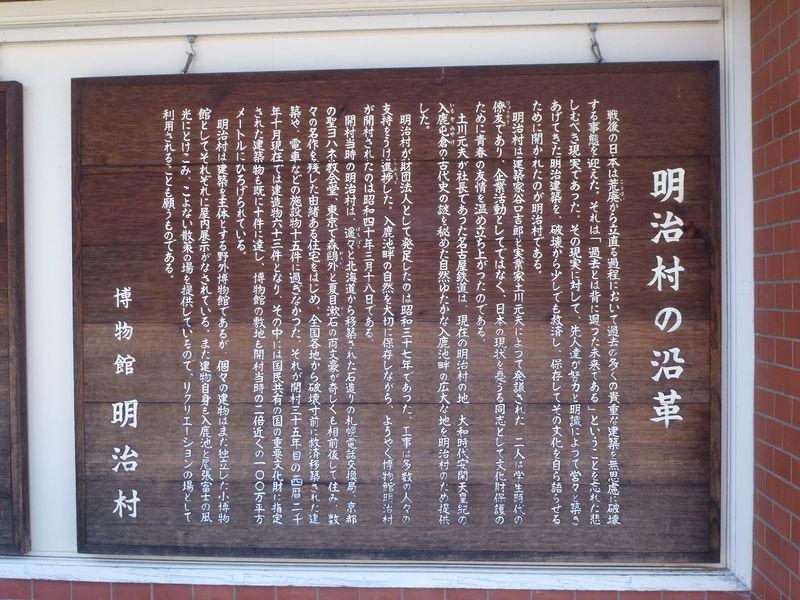 明治村の沿革
戦後の日本は荒廃から立直る過程において過去の多くの貴重な建築を無思慮に破壊
する事態を迎えた。それは「過去とは背に廻った未来である」ということを忘れた悲
しむべき現実であった。その現実に対して、先人達が努力と明識によって営々と築き
あげてきた明治建築を、破壊から少しでも救済し、保存してその文化を自ら語らせる
ために開かれたのが明治村である。
明治村は建築家谷口吉郎と実業家土川元夫によって発議された。二人は学生時代の
僚友であり、企業活動としてではなく、日本の現状を憂うる同志として文化財保護の
ために青春の友情を温め立ち上がったのである。
土川元夫が社長であった名古屋鉄道は、現在の明治村の地、大和時代安閑天皇紀の
入鹿屯倉の古代史の謎を秘めた自然ゆたかな入鹿池畔の広大な地を明治村のため提供
した。
明治村が財団法人として発足したのは昭和三十七年であった。工事は多数の人々の
支持をうけ進捗した。入鹿池畔の自然を大切に保存しながら、ようやく博物館明治村
が開村されたのは昭和四十年三月十八日である。
開村当時の明治村は、遙々と北海道から移築された石造りの札幌電話交換局、京都
の聖ヨハネ教会堂、東京で森鷗外と夏目漱石の両文豪が奇しくも相前後して住み、数
々の名作を残した由緒ある住宅をはじめ、全国各地から破壊寸前に救済移築された建
築や、電車などの施設物十五件に過ぎなかった。それが開村三十五年目の西暦二千
年十月現在では建造物六十三件となり、その中には国民共有の国の重要文化財に指定
された建築物も既に十件に達し、博物館の敷地も開村当時の二倍近くの一〇〇万平方
メートルにひろげられている。
明治村は建築を主体とする野外博物館であるが、個々の建物はまた独立した小博物
館としてそれぞれに屋内展示がなされている。また建物自身も入鹿池と尾張富士の風
光にとけこみ、こよない散策の場を提供しているので、リクリエーションの場として
利用されることも願うものである。
博物館 明治村